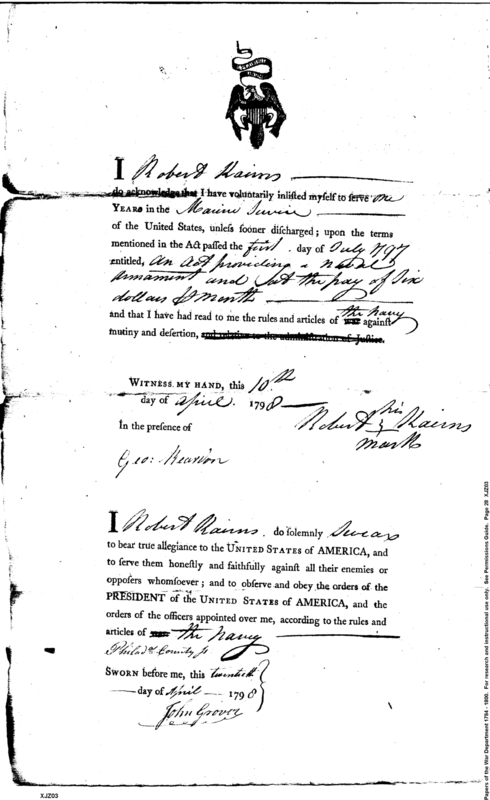 I Robert Kairns
do acknowledge that I have voluntarily inlisted myself to serve one
YEARS in the Marine Service
of the United States, unless sooner discharged; upon the terms
mentioned in the Act passed the first day of July 1797
entitled, an Act providing a naval
armament and at the pay of Six
dollars Month
and that I have had read to me the rules and articles of war the navy against
mutiny and desertion, and relative to the administration of Justice.
WITNESS MY HAND, this 10th
day of April 1798
In the presence of
Robert his Kairns
mark
Geo:
I Robert Kairns, do solemnly Swear
to bear true allegiance to the UNITED STATES of AMERICA, and
to serve them honestly and faithfully against all their enemies or
opposers whomsoever; and to observe and obey the orders of the
PRESIDENT of the UNITED STATES of AMERICA, and the
orders of the officers appointed over me, according to the rules and
articles of war the Navy
Philad County ss
SWORN before me, this twentieth
day of April 1798
John Grover
XJZ03
Papers of the War Department 1784 - 1800. For research and instructional use only. See Permissions Guide. Page 28 XJZ03